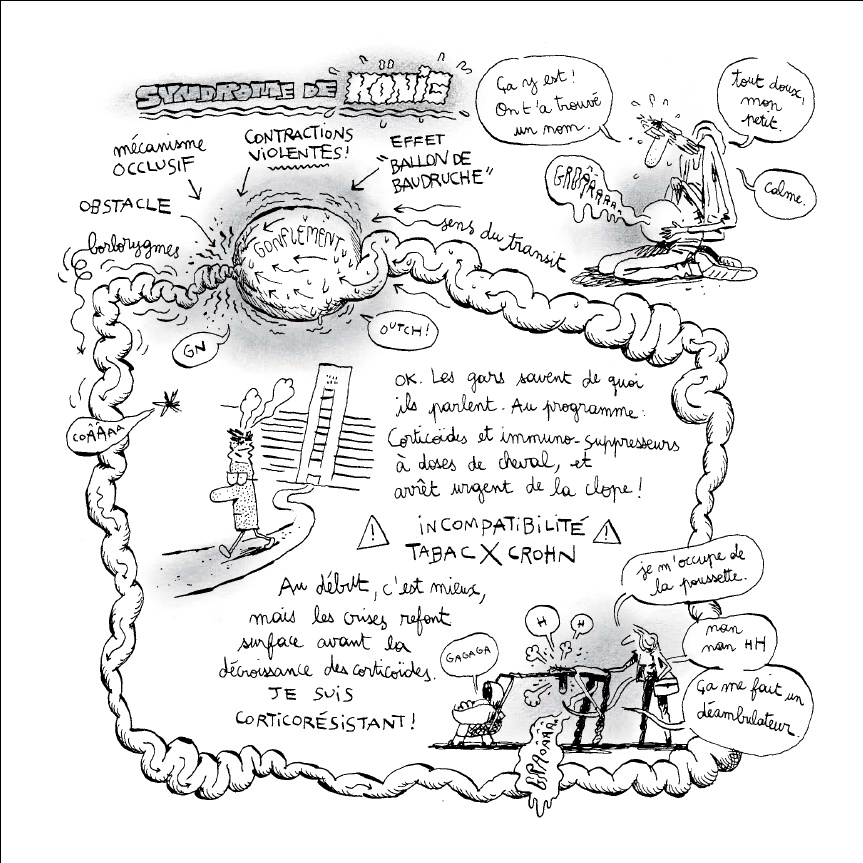 SYNDROME DE KÖNIG
Ça y est !
On t'a trouvé
un nom.
tout doux,
mon
petit.
Calme.
GRBRÂÂÂAAAA...
mécanisme
OCCLUSIF
CONTRACTIONS
VIOLENTES !
EFFET
"BALLON DE
BAUDRUCHE"
OBSTACLE
borborygmes
GONFLEMENT
sens du transit
GN
OUTCH !
COÂÂAAA
OK. Les gars savent de quoi
ils parlent. Au programme :
Corticoïdes et immuno-suppresseurs
à doses de cheval, et
arrêt urgent de la clope !
! INCOMPATIBILITÉ !
TABAC X CROHN
Au début, c'est mieux,
mais les crises refont
surface avant la
décroissance des corticoïdes.
JE SUIS
CORTICORÉSISTANT !
je m'occupe de
la poussette.
H
H
GAGAGA
nan
nan HH
Ça me fait un
déambulateur.